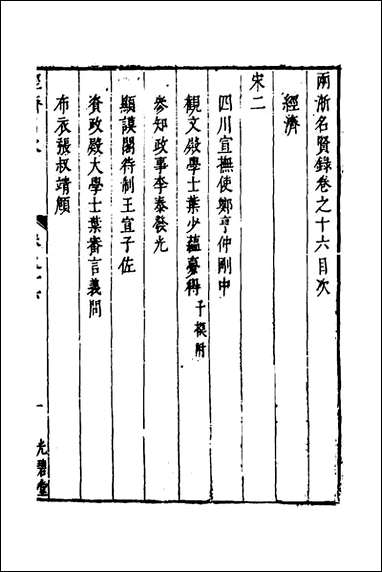 兩浙名賢錄卷之十六目次
經濟
宋二
四川宣撫使鄭亨仲剛中
觀文殿學士葉少蘊夢得子模附
參知政事李泰發光
顯謨閣待制王宣子佐
資政殿大學士葉審言義問
布衣張叔靖頠
一
光碧堂